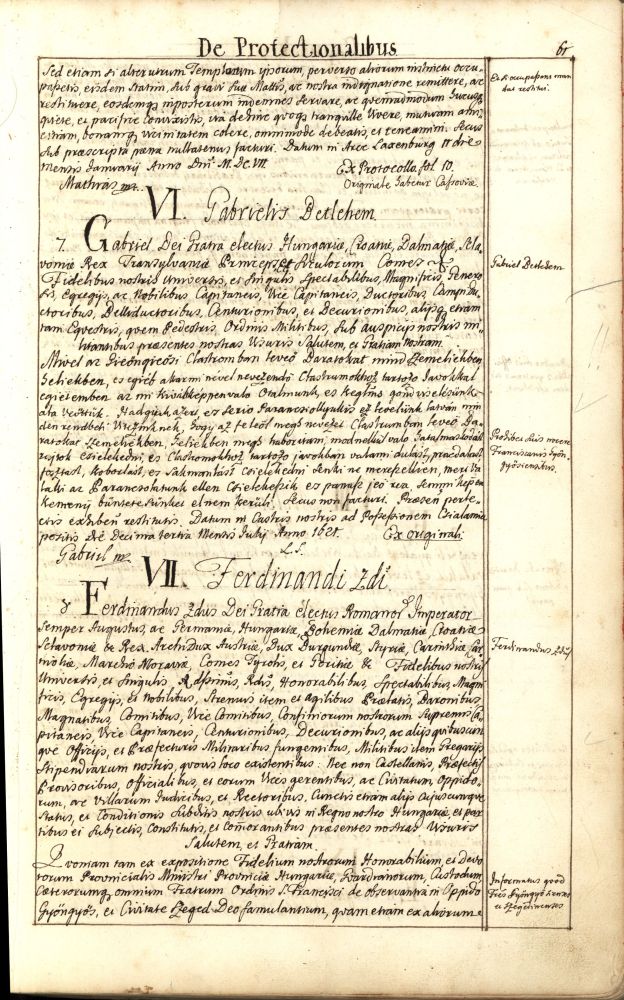 De Protectionalibus
61
Sed etiam si alterutrum Templorum ipsorum, perverso aliorum instinctu occu-
passetis, eisdem statim, sub gravi Suæ Mattis, ac nostra indignatione remittere, ac
restituere, eosdemque inposterum indemnes servare, ac quemadmodum hucusque
quiete, et pacifice convixistis, ita dehinc quoque tranquille vivere, mutuam ami-
citiam, bonamque vicinitatem colere, omnimode debeatis, et teneamini. Secus
sub præscripta pæna nullatenus facturi. Datum in Arce Laxenburg die
Mensis Januarij Anno Dni M.DC.VII
Ex Protocollo fol 10.
Mathias mp.
Originale habetur Cassoviæ.
Et si occupassent man
dat restitui.
VI. Gabrielis Betlehem
7. Gabriel Dei Gratia electus Hungariæ, Croatiæ, Dalmatiæ, Scla-
voniæ Rex Transylvaniæ Princeps et Siculorum Comes &
Fidelibus nostris Universis, et Singulis Spectabilibus, Magnificis, Genero-
sis, Egregijs, ac Nobilibus Capitaneis, Vice Capitaneis, Ductoribus, Campidu-
ctoribus, Belliductoribus, Centurionibus, et Decurionibus, alijsque etiam
tam Equestris, quam Pedestris Ordinis Militibus, sub auspicijs nostris mi-
litantibus præsentes nostras Visuris Salutem, et Gratiam nostram.
Gabriel Betlehem
Mivel az Gieöngieösi Clastromban leveö Baratokat mind Szemeliekben
heliekben, es egieb akarmi nevel nevezendö Clastrumokhoz tartozo Javokkal
egietemben az mi
ala vettük. Hadgiuk azert, es serio Parancsiollyuk is ez levelünk latvan min
den rendbeli Vitezinknek, hogy az felleöl megh nevezet Clastrumban leveö Ba-
ratokat Szemeliekben, heliekben megh haboritani, modnelkül valo hatalmaskodast
rajtok cselekedni, es Clastromokhoz tartozo javokban valami dulast, praedalast
fosztast, koborlast, es sakmaniast cselekedni senki ne merezellien, mert va-
laki az Parancsolatunk ellen cselekeszik es panasz jeö rea, semmi keppen
kemeny büntetesünket el nem kerüli. Secus non facturi. Præsen. perle-
ctis exhiben. restitutis. Datum in Castris nostris ad Possessionem Csialamia
positis die Decima tertia Mensis Julij Anno 1621.
Ex originali.
Gabriel mp.
L.S.
Prohibet suis nocere
Franciscanis Gyön
gyösiensibus.
VII. Ferdinandi 2di
8 Ferdinandus 2dus Dei Gratia electus Romanor. Imperator
semper Augustus, ac Germaniæ, Hungariæ, Bohemiæ Dalmatiæ Croatiæ
Sclavoniæ & Rex. ArchiDux Austriæ, Dux Burgundiæ, Styriæ, Carinthiæ Car-
nioliæ, Marchio Moraviæ, Comes Tyrolis, et Goritiæ & Fidelibus nostris
Universis, et Singulis Rdssimis, Rdis, Honorabilibus Spectabilibus Magni-
ficis, Egregijs, et Nobilibus, Strenuis item et Agilibus Prælatis, Baronibus
Magnatibus, Comitibus, Vice Comitibus, Confiniorum nostrorum Supremis Ca-
pitaneis, Vice Capitaneis, Centurionibus, Decurionibus, ac alijs quibuscun-
que Officijs, et Præfecturis Militaribus fungentibus, Militibus item Gregarijs
Stipendiarijs nostris, quovis loco existentibus: Nec non Castellanis, Præfectis
Provisoribus, Officialibus, et eorum Vices gerentibus, ac Civitatum, Oppido-
rum, ac Villarum Judicibus, et Rectoribus, Cunctis etiam alijs cujuscunque
Status, et Conditionis Subditis nostris ubivis in Regno nostro Hungariæ, et par-
tibus ei Subjectis, Constitutis, et Comorantibus præsentes nostras Visuris
Salutem, et Gratiam.
Ferdinandus 2dus
Quoniam tam ex expositione Fidelium nostrorum Honorabilium, et Devo-
torum Provincialis Ministri Provinciæ Hungariæ, Guardianorum, Custodum,
Cæterorumque omnium Fratrum Ordinis S. Francisci de Observantia in Oppido
Gyöngyös, et Civitate Szeged Deo famulantium, quam etiam ex aliorum
Informatus quod
Fres Gyöngyösienses
et Szegedienses